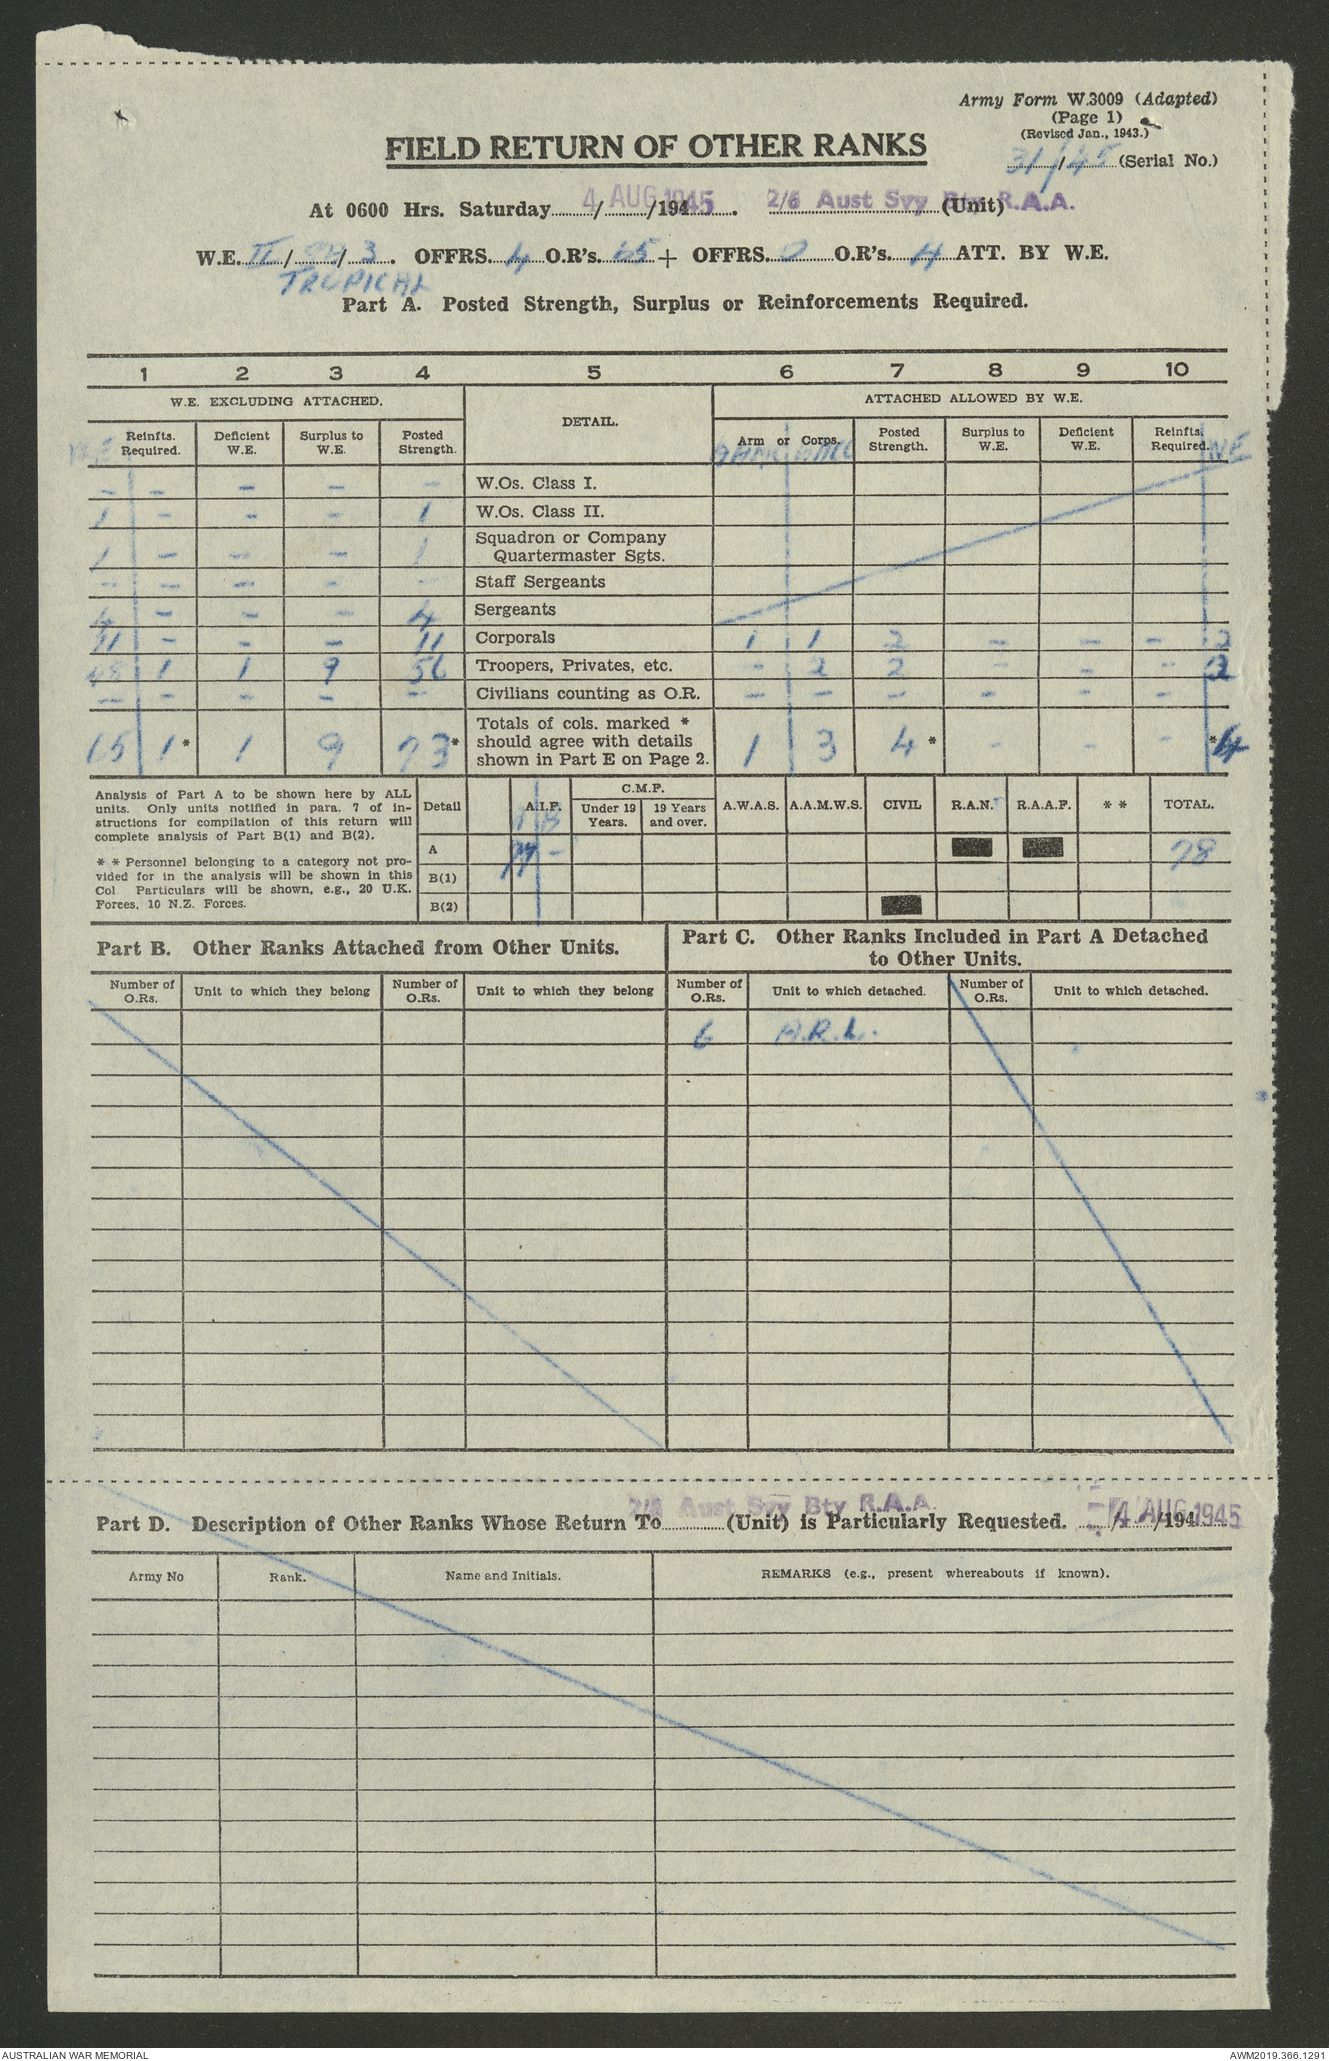 Army Form W.3009 (Adapted)
(Page 1)
(Revised Jan., 1943.)
31/45 (Serial No.)
FIELD RETURN OF OTHER RANKS
At 0600 Hrs. Saturday 4 AUG 1945. 2/6 Aust Svy Bty R.A.A. (Unit)
W.E. II/ / 3. OFFRS. 4 O.R's. 65 + OFFRS. 0 O.R's. 4 ATT. BY W.E.
TROPICAL
Part A. Posted Strength, Surplus or Reinforcements Required.
1 2 3 4 5 6 7 8 9 10
W.E. EXCLUDING ATTACHED. DETAIL. ATTACHED ALLOWED BY W.E.
W.E. Reinfts. Required. Deficient W.E. Surplus to W.E. Posted Strength. Arm or Corps. Posted Strength. Surplus to W.E. Deficient W.E. Reinfts. Required. WE
AAMC AACC
- - - - - W.Os. Class I.
1 - - - 1 W.Os. Class II.
1 - - - 1 Squadron or Company Quartermaster Sgts.
- - - - - Staff Sergeants
4 - - - 4 Sergeants
11 - - - 11 Corporals 1 1 2 - - - 2
48 1 1 9 56 Troopers, Privates, etc. - 2 2 - - - 2
- - - - - Civilians counting as O.R. - - - - - -
65 1* 1 9 73* Totals of cols. marked * should agree with details shown in Part E on Page 2. 1 3 4* - - - *4
Analysis of Part A to be shown here by ALL
units. Only units notified in para. 7 of in-
structions for compilation of this return will
complete analysis of Part B(1) and B(2).
* * Personnel belonging to a category not pro-
vided for in the analysis will be shown in this
Col Particulars will be shown, e.g., 20 U.K.
Forces, 10 N.Z. Forces.
Detail A.I.F. C.M.F. Under 19 Years. 19 Years and over. A.W.A.S. A.A.M.W.S. CIVIL R.A.N. R.A.A.F. * * TOTAL.
A 77 - 78
B(1)
B(2)
Part B. Other Ranks Attached from Other Units.
Part C. Other Ranks Included in Part A Detached
to Other Units.
Number of O.Rs. Unit to which they belong Number of O.Rs. Unit to which they belong Number of O.Rs. Unit to which detached. Number of O.Rs. Unit to which detached.
6 A.R.L.
Part D. Description of Other Ranks Whose Return To 2/6 Aust Svy Bty R.A.A. (Unit) is Particularly Requested. 4 AUG 1945
Army No Rank. Name and Initials. REMARKS (e.g., present whereabouts if known).
AUSTRALIAN WAR MEMORIAL
AWM2019.366.1291